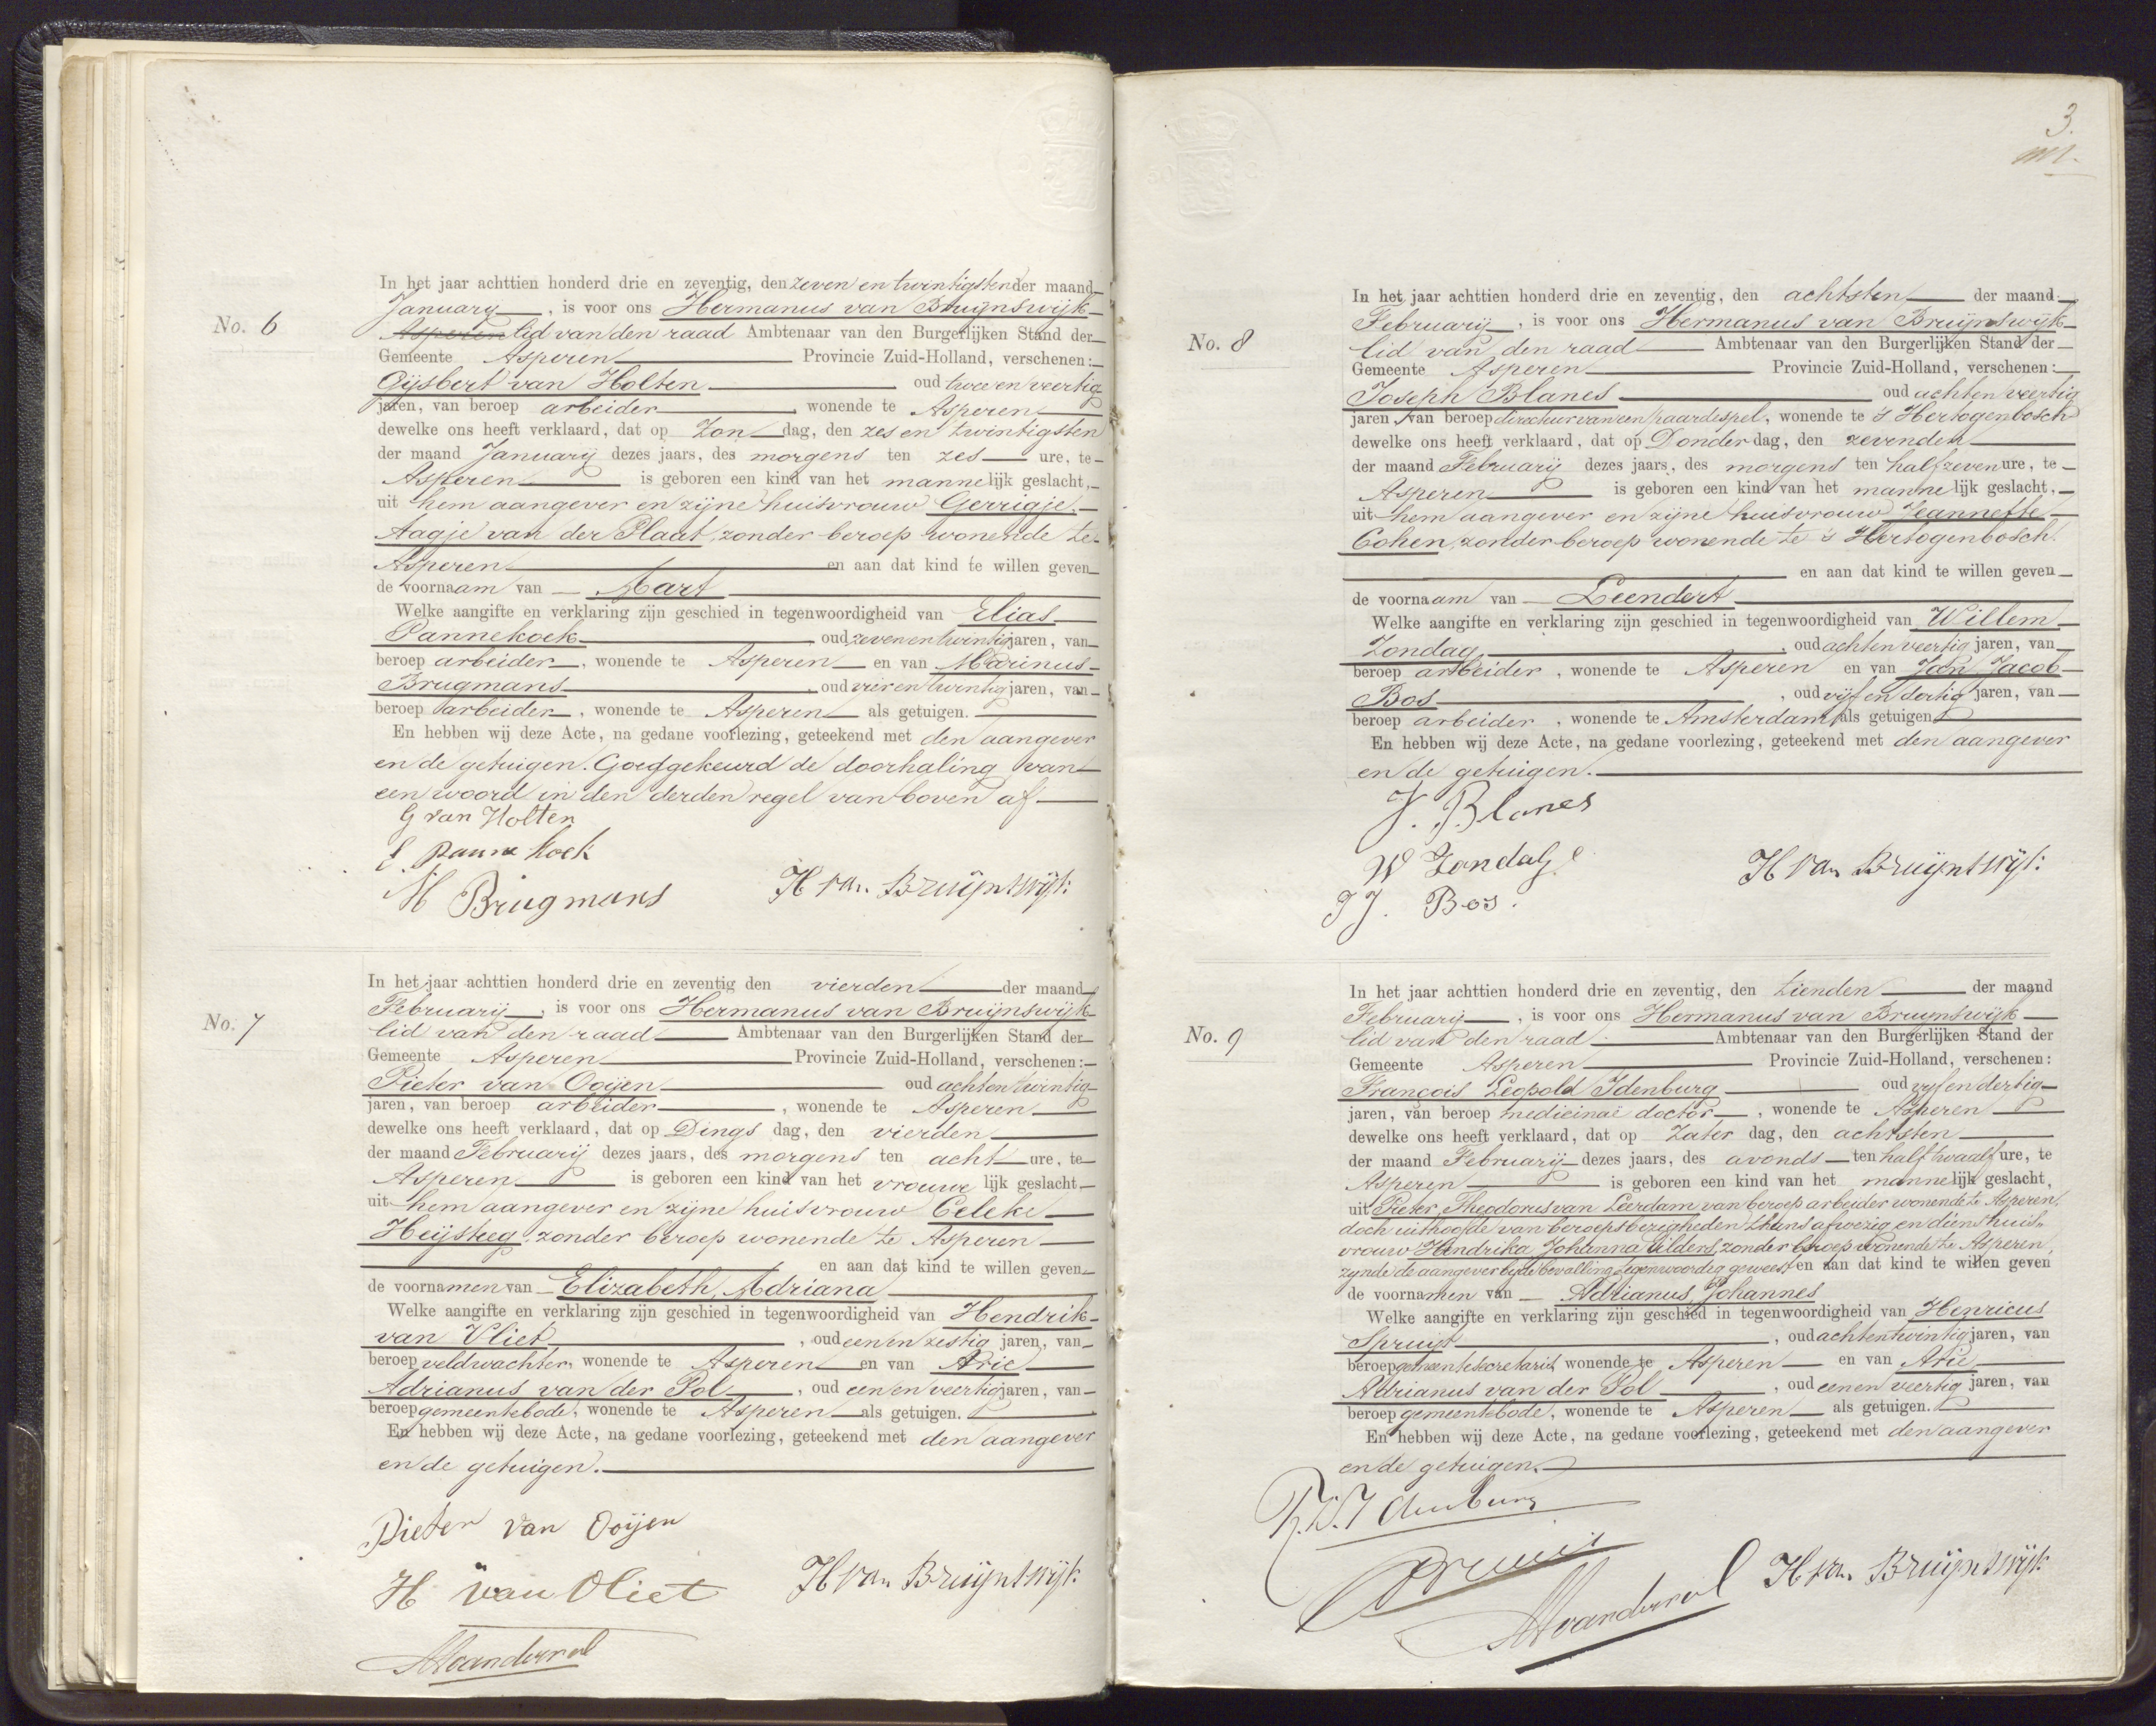 No. 6
In het jaar achttien honderd drie en zeventig, den zeven en twintigsten der maand
January, is voor ons Hermanus van Bruijnswijk
Asperen lid van den raad Ambtenaar van den Burgerlijken Stand der
Gemeente Asperen Provincie Zuid-Holland, verschenen:
Gijsbert van Holten oud twee en veertig
jaren, van beroep arbeider, wonende te Asperen
dewelke ons heeft verklaard, dat op Zondag, den zes en twintigsten
der maand Januarij dezes jaars, des morgens ten zes ure, te
Asperen is geboren een kind van het mannelijk geslacht,
uit hem aangever en zijne huisvrouw Gerrigje
Aagje van der Plaat, zonder beroep wonende te
Asperen en aan dat kind te willen geven
de voornaam van Mart
Welke aangifte en verklaring zijn geschied in tegenwoordigheid van Elias
Pannekoek oud zeven en twintig jaren, van
beroep arbeider, wonende te Asperen en van Marinus
Brugmans, oud vier en twintig jaren, van
beroep arbeider, wonende te Asperen als getuigen.
En hebben wij deze Acte, na gedane voorlezing, geteekend met den aangever
en de getuigen. Goedgekeurd de doorhaling van
een woord in den derden regel van boven af
G van Holten
E panne koek
M Brugmans H van Bruijnswijk
No. 7
In het jaar achttien honderd drie en zeventig den vierden der maand
Februarij, is voor ons Hermanus van Bruijnswijk
lid van den raad Ambtenaar van den Burgerlijken Stand der
Gemeente Asperen Provincie Zuid-Holland, verschenen:
Pieter van Ooijen oud acht en twintig
jaren, van beroep arbeider, wonende te Asperen
dewelke ons heeft verklaard, dat op Dings dag, den vierden
der maand Februarij dezes jaars, des morgens ten acht ure, te
Asperen is geboren een kind van het vrouwe lijk geslacht
uit hem aangever en zijne huisvrouw Celeke
Heijsteeg, zonder beroep wonende te Asperen
en aan dat kind te willen geven
de voornamen van Elizabeth, Adriana
Welke aangifte en verklaring zijn geschied in tegenwoordigheid van Hendrik
van Vliet, oud een en zestig jaren, van
beroep veldwachter, wonende te Asperen en van Arie
Adrianus van der Pol, oud een en veertig jaren, van
beroep gemeentebode, wonende te Asperen als getuigen.
En hebben wij deze Acte, na gedane voorlezing, geteekend met den aangever
en de getuigen.
Pieter van Ooijen
H van Vliet H van Bruijnswijk
AAvanderpol
3.
No. 8
In het jaar achttien honderd drie en zeventig, den achtsten der maand
Februarij, is voor ons Hermanus van Bruijnswijk
lid van den raad Ambtenaar van den Burgerlijken Stand der
Gemeente Asperen Provincie Zuid-Holland, verschenen:
Joseph Blanes oud acht en veertig
jaren, van beroep directeur van een paardespel, wonende te 's Hertogenbosch
dewelke ons heeft verklaard, dat op Donderdag, den zevenden
der maand Februarij dezes jaars, des morgens ten half zeven ure, te
Asperen is geboren een kind van het mannelijk geslacht,
uit hem aangever en zijne huisvrouw Jeannette
Cohen, zonder beroep wonende te 's Hertogenbosch.
en aan dat kind te willen geven
de voornaam van Leendert
Welke aangifte en verklaring zijn geschied in tegenwoordigheid van Willem
Zondag, oud acht en veertig jaren, van
beroep arbeider, wonende te Asperen en van Jan Jacob
Bos, oud vijf en dertig jaren, van
beroep arbeider, wonende te Amsterdam als getuigen
En hebben wij deze Acte, na gedane voorlezing, geteekend met den aangever
en de getuigen.
J. Blanes
W Zondag H van Bruijnswijk
J J. Bos.
No. 9
In het jaar achttien honderd drie en zeventig, den tienden der maand
Februarij, is voor ons Hermanus van Bruijnswijk
lid van den raad Ambtenaar van den Burgerlijken Stand der
Gemeente Asperen Provincie Zuid-Holland, verschenen:
François Leopold Idenburg oud vijf en dertig
jaren, van beroep medicinae doctor, wonende te Asperen
dewelke ons heeft verklaard, dat op Zater dag, den achtsten
der maand Februarij dezes jaars, des avonds ten half twaalf ure, te
Asperen is geboren een kind van het mannelijk geslacht,
uit Pieter Theodorus van Leerdam van beroep arbeider wonende te Asperen,
doch uithoofde van beroepsbezigheden thans afwezig en diens huis„
vrouw Hendrika Johanna Vilders, zonder beroep wonende te Asperen,
zynde de aangever bij de bevalling tegenwoordig geweest en aan dat kind te willen geven
de voornamen van Adrianus, Johannes
Welke aangifte en verklaring zijn geschied in tegenwoordigheid van Henricus
Spruijt, oud acht en twintig jaren, van
beroep gemeentesecretaris, wonende te Asperen en van Arie
Adrianus van der Pol, oud een en veertig jaren, van
beroep gemeentebode, wonende te Asperen als getuigen.
En hebben wij deze Acte, na gedane voorlezing, geteekend met den aangever
en de getuigen.
Idenburg
Spruijt
AAvanderpol H van Bruijnswijk